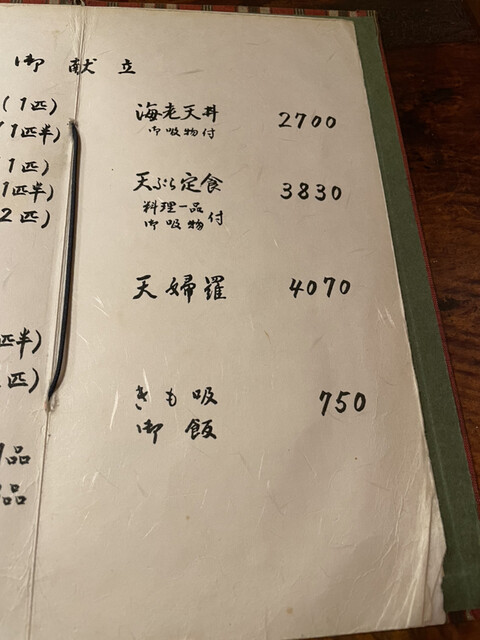 御献立
(1匹)
(1匹半)
(1匹)
1匹半)
2匹)
匹半)
匹)
品
品
海老天丼 2700
御吸物付
天ぷら定食 3830
料理一品
御吸物付
天婦羅 4070
きも吸 750
御飯